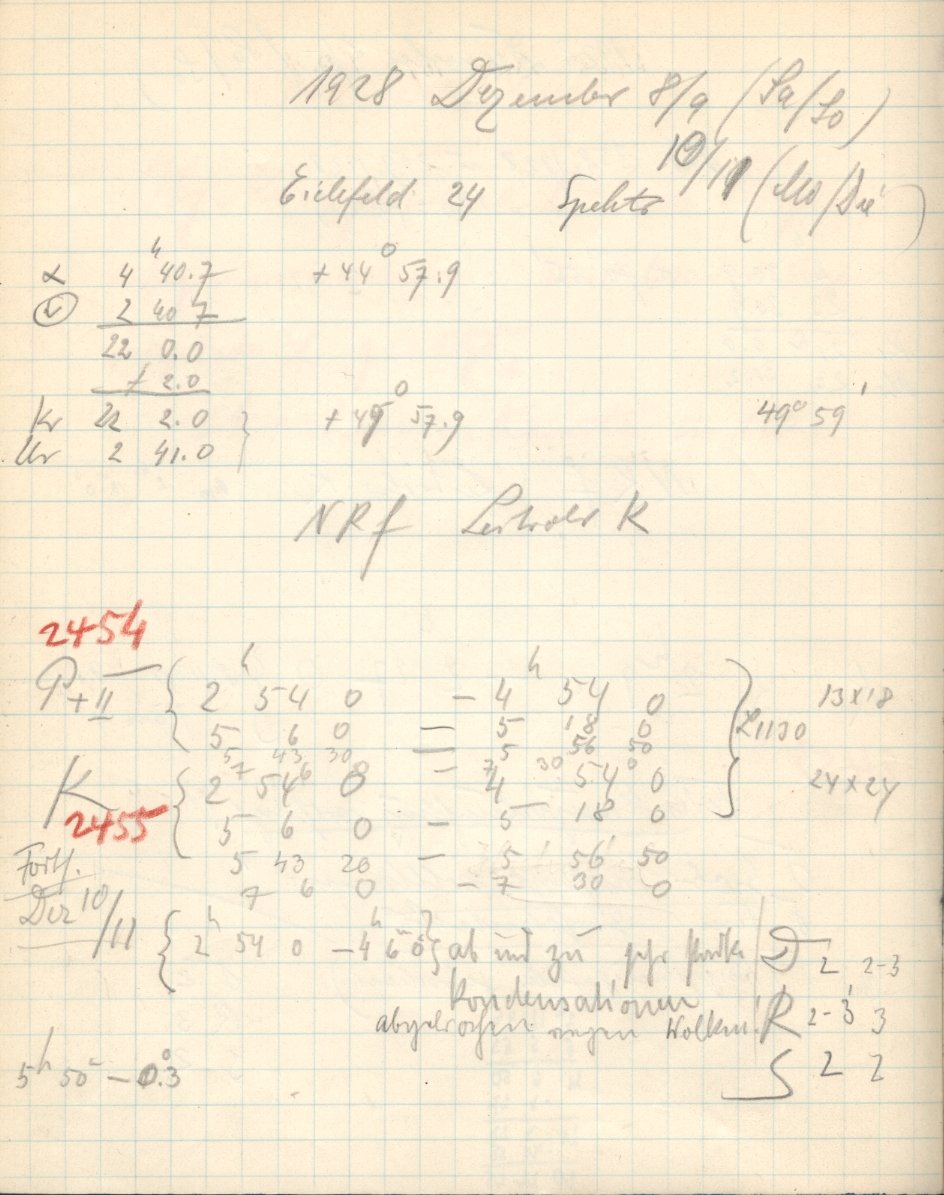 1928 Dezember 8/9 (Sa/So)
10/11 (Mo/Die)
Eichfeld 24 Spektr
α 4h 40.7 +44° 57.9
2 40 7
22 0.0
+ 2.0
Kr 22 2.0 +49° 57.9 49° 59'
Uhr 2 41.0
NRf K
2454
P+II 2h 54 0 – 4h 54 0 13x18
5 6 0 – 5 18 0 1130
5 43 30 – 5 56 50
7 6 0 – 7 30 0
K 2 54 0 4 54 0 24x24
2455
5 6 0 – 5 18 0
Fortf.
5 43 20 – 5 56 50
7 6 0 – 7 30 0
Dez 10/11 2h 54 0 – 4h 6 0 ab und zu sehr starke D 2 2-3
Kondensationen
abgebrochen wegen Wolken! R 2-3 3
S 2 2
5h 50m – 0.°3